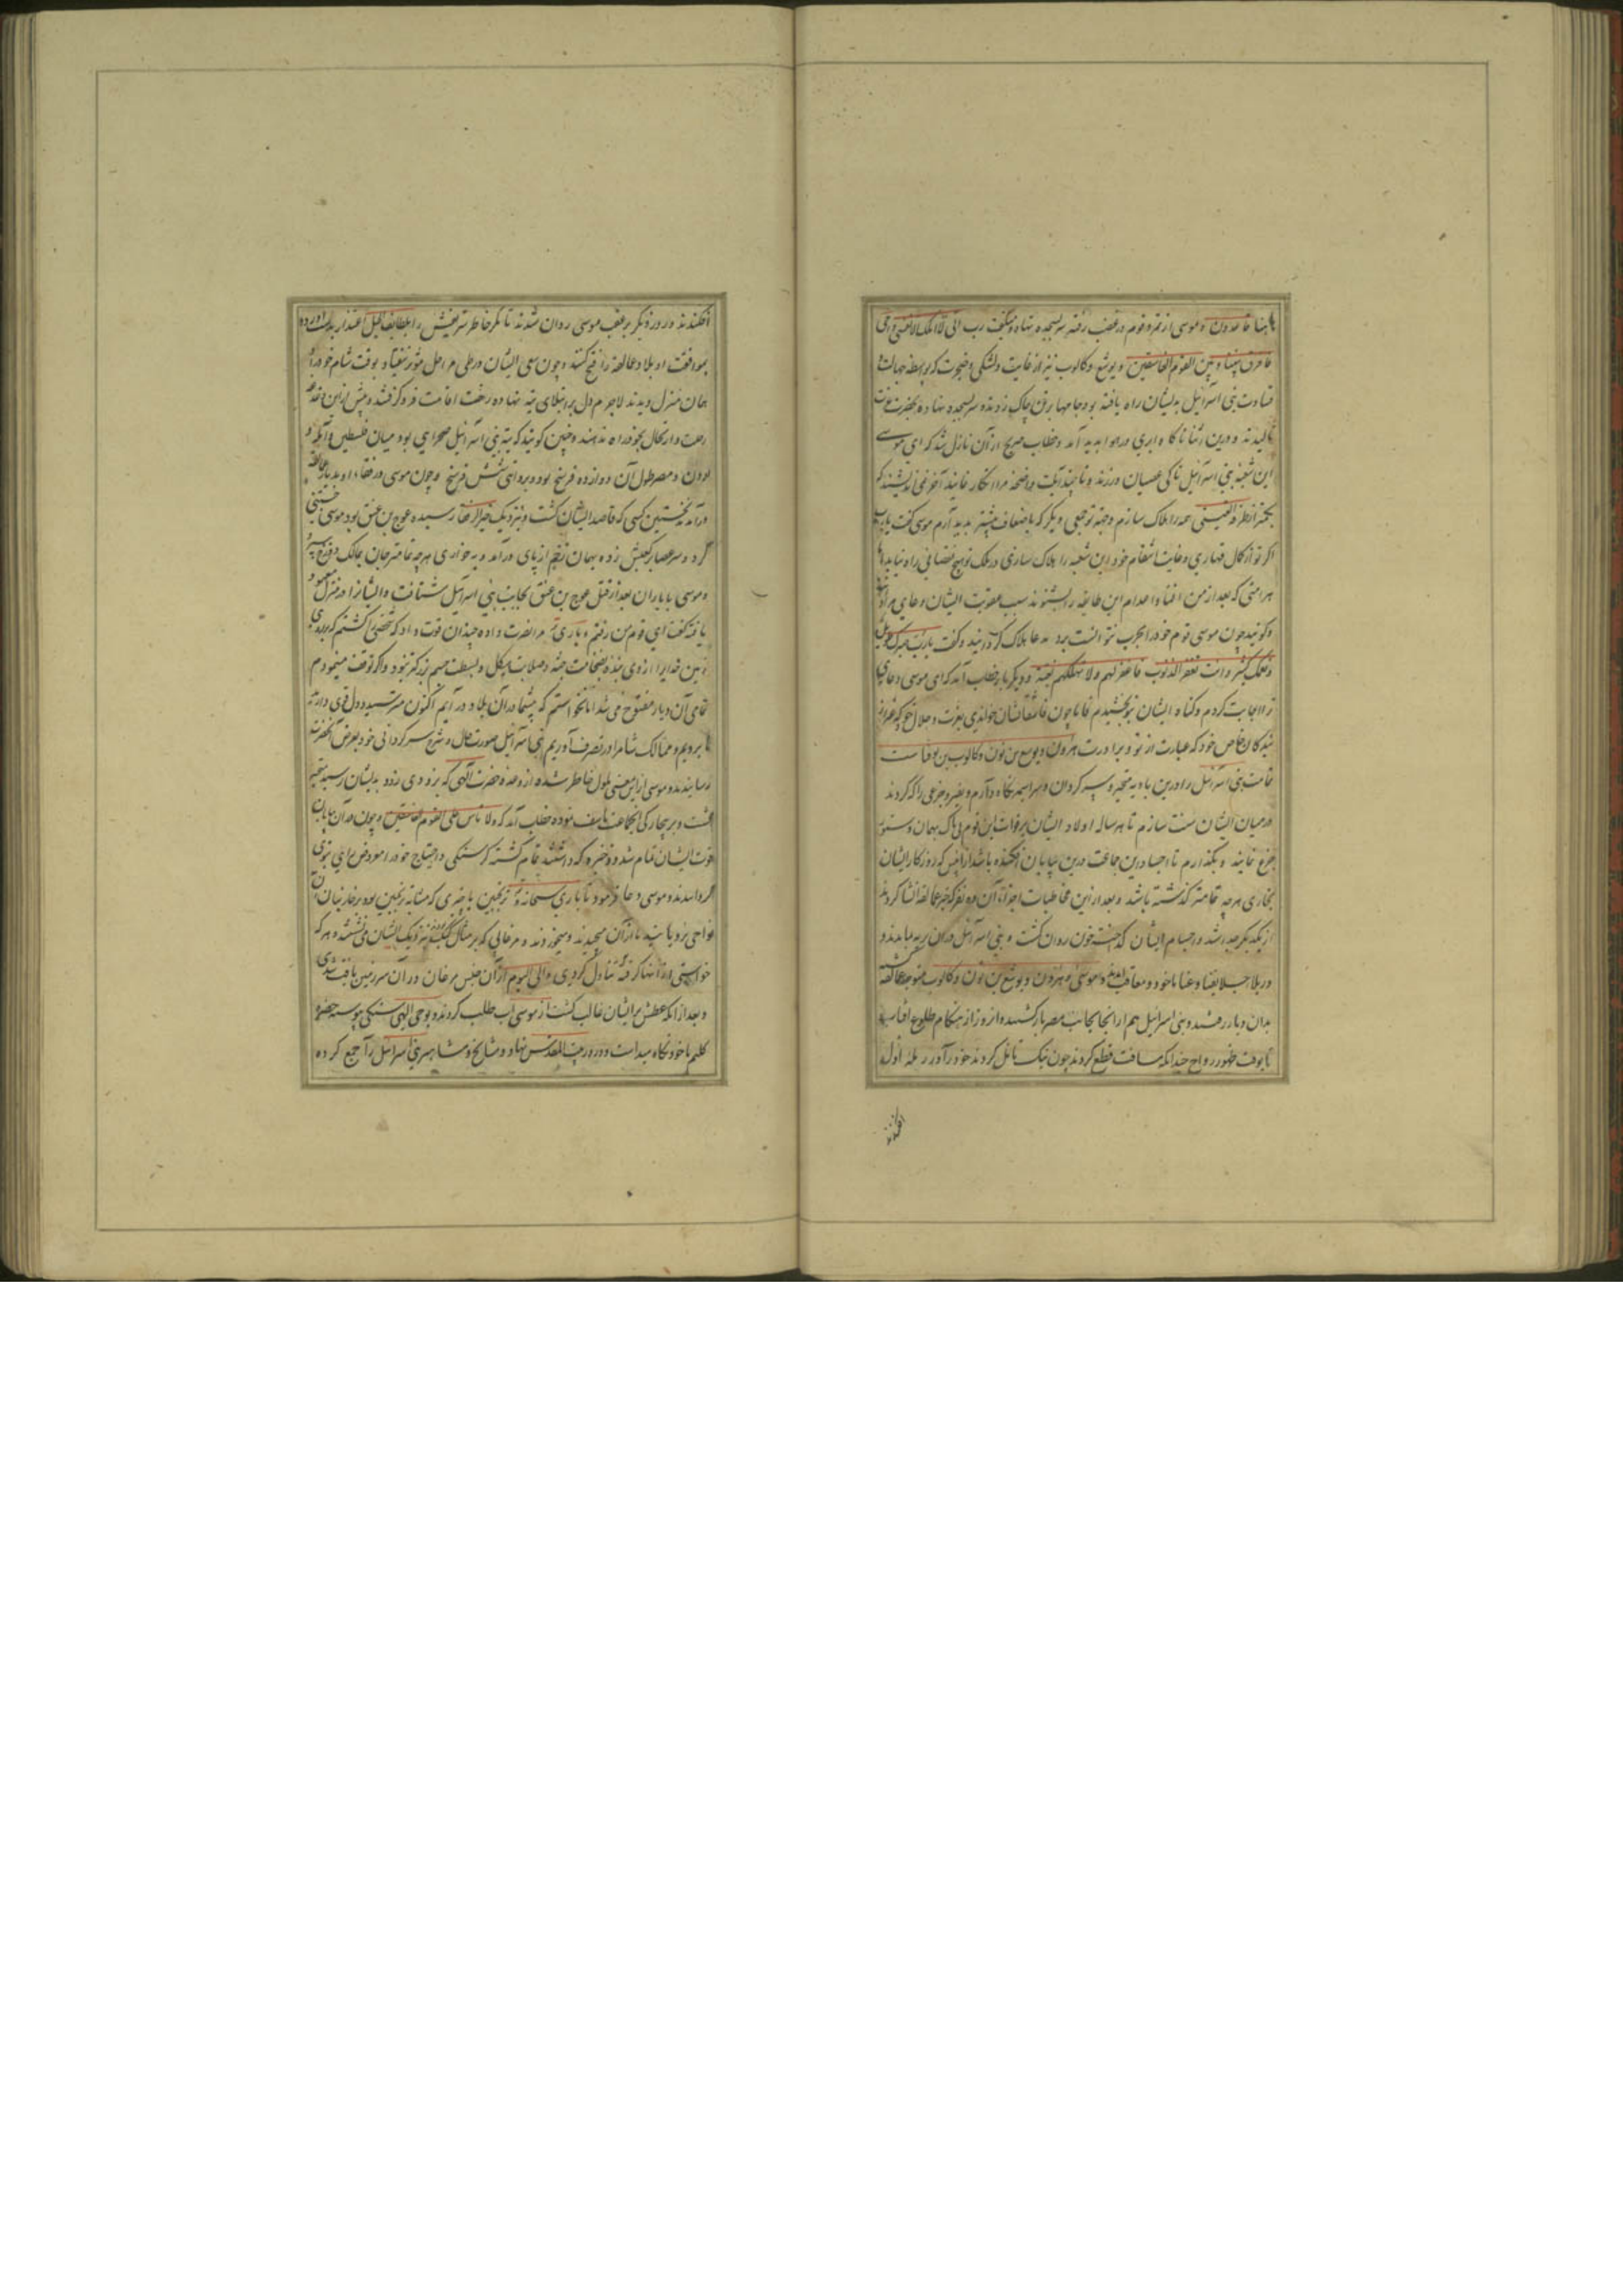 هاهنا قاعدون و موسی از تمرد قوم در غضب رفته سر بسجده نهاد میگفت رب انی لا املک الا نفسی و اخی
فافرق بیننا و بین القوم الفاسقین و یوشع و کالوب نیز از غایت دلتنکی و ضجرت که بواسطه جهالت و
قساوت بنی اسرائیل بدیشان راه یافته بود جامها بر تن چاک زدند و سر بسجده نهاده بحضرت عزت
نالیدند و درین اثنا ناکاه ابری در هوا پدید آمد و خطاب صریح از آن نازل شد که ای موسی
این شعبه بنی اسرائیل تا کی عصیان ورزند و تا چند آیات واضحه مرا انکار نمایند آخر نمی اندیشند که
همه را هلاک سازم و جهة تو جمعی دیکر که باضعاف بیشتر پدید آرم موسی گفت یا رب
اگر تو از کمال قهاری و غایت انتقام خود این شعبه را هلاک سازی در ملک تو هیچ نقصانی راه نیابد اما
هر امتی که بعد از من افنا و اعدام این طایفه را بشنوند سبب عقوبت ایشان دعای مرا دانند
و گویند چون موسی قوم خود را بحرب نتوانست برد بدعا هلاک گردانید و گفت یا رب صبرک طویل
و نعمک کثیر و انت تغفر الذنوب فاغفر لهم و لا تهلکهم بغتة و دیکر باره خطاب آمد که ای موسی دعای
ترا اجابت کردم و کناه ایشان بتو بخشیدم فاما چون فاسقانشان خواندی بعزت و جلال خود که غیر از
بندکان خاص خود که عبارت از تو و برادرت هرون و یوشع بن نون و کالوب بن یوفناست
تمامت بنی اسرائیل را درین بادیه متحیر و سرکردان و سراسیمه نکاه دارم و بغیر و جزعی را که کردند
در میان ایشان سنت سازم تا هر ساله اولاد ایشان بر فوات این قوم بی باک بهمان دستور
جزع نمایند و نکذارم تا اجساد این جماعت درین بیابان افکنده باشد از آنپس که روزکار ایشان
بخاری هر چه تمامتر کذشته باشد و بعد از این مخاطبات اجزاء آن ده نفر که خبر عمالقه افشا کردند
از یکدیکر جدا شد و از اجسام ایشان خون روان کشت و بنی اسرائیل در آن بادیه بماندند
و موسی و هرون و یوشع بن نون و کالوب متوجه عمالقه کشته
بدان دیار رفتند و بنی اسرائیل هم از آنجا بجانب مصر بازگشتند و آنروز از هنکام طلوع آفتاب
تا بوقت ظهور رواح چندانکه مسافت قطع کردند چون نیک تامل کردند خود را در مرحله اول
افکندند
افکندند و روز دیکر بر عقب موسی روان شدند تا مکر خاطر شریفش را بلطایف الحیل اعتذار بدست آورده
بموافقت او بلاد عمالقه را فتح کنند و چون سعی ایشان در طی مراحل مؤثر نیفتاد بوقت شام خود را در
همان منزل دیدند لاجرم دل بر ابتلای تیه نهاده رخت اقامت فرو گرفتند و پیش از این دغدغه
رحلت و ارتحال بخود راه ندادند و چنین کویند که تیه بنی اسرائیل صحرایی بود میان فلسطین و ایله و
اردن و مصر طول آن دوازده فرسخ بود و پهنای شش فرسخ و چون موسی و رفقاء او بدیار عمالقه
درآمدند نخستین کسی که قاصد ایشان کشت و نزدیک رسیده عوج بن عنق بود موسی جستی
کرد و سر عصا بر کعبش زده بهمان زخم از پای درآمد و بخواری هر چه تمامتر جان بمالک دوزخ سپرد
و موسی با یاران بعد از قتل عوج بن عنق بجانب بنی اسرائیل شتافت و ایشانرا در منزل معهود
یافته گفت ای قوم من رفتم و باری تعالی مرا نصرت داده چندان قوت داد که شخصی را کشتم که بر روی
زمین خدایرا از وی بنده بضخامت جثه و صلابت هیکل و بسطت جسم بزرکتر نبود و اگر توقف مینمودم
تمامی آن دیار مفتوح می شد اما نخواستم که بیشما در آن بلاد در آیم اکنون مترسید و دل قوی دارید
تا برویم و ممالک شام را در تصرف آوریم بنی اسرائیل صورت حال و شرح سرکردانی خود بعرض آنحضرت
رسانیدند و موسی از این معنی ملول خاطر شده از وعده حضرت الهی که بزودی زود بدیشان رسید متحیر
کشت و بر بیچارکی آنجماعت تاسف نموده خطاب آمد که و لا تاس علی القوم الفاسقین و چون در آن بیابان
قوت ایشان تمام شد و ذخیره که داشتند تمام کشته کرسنکی و احتیاج خود را معروض رای نبوی
کردانیدند و موسی دعا فرمود تا باری سبحانه و ترنجبین یا چیزی که مشابه ترنجبین بود بر خار بنان آن
نواحی بزویانید تا از آن میچیدند و میخوردند و مرغانی که بر مثال کبک بودند نزدیک ایشان می نشستند و هر که
خواستی از آنها کرفته تناول کردی و الی الیوم از آن جنس مرغان در آن سرزمین یافت شدی
و بعد از آنکه عطش بر ایشان غالب کشت از موسی آب طلب کردند و بوحی الهی سنکی پیوسته حضرت
کلیم با خود نکاه میداشت و در بیت المقدس نهاد و مشایخ و مشاهیر بنی اسرائیل را جمع کرده